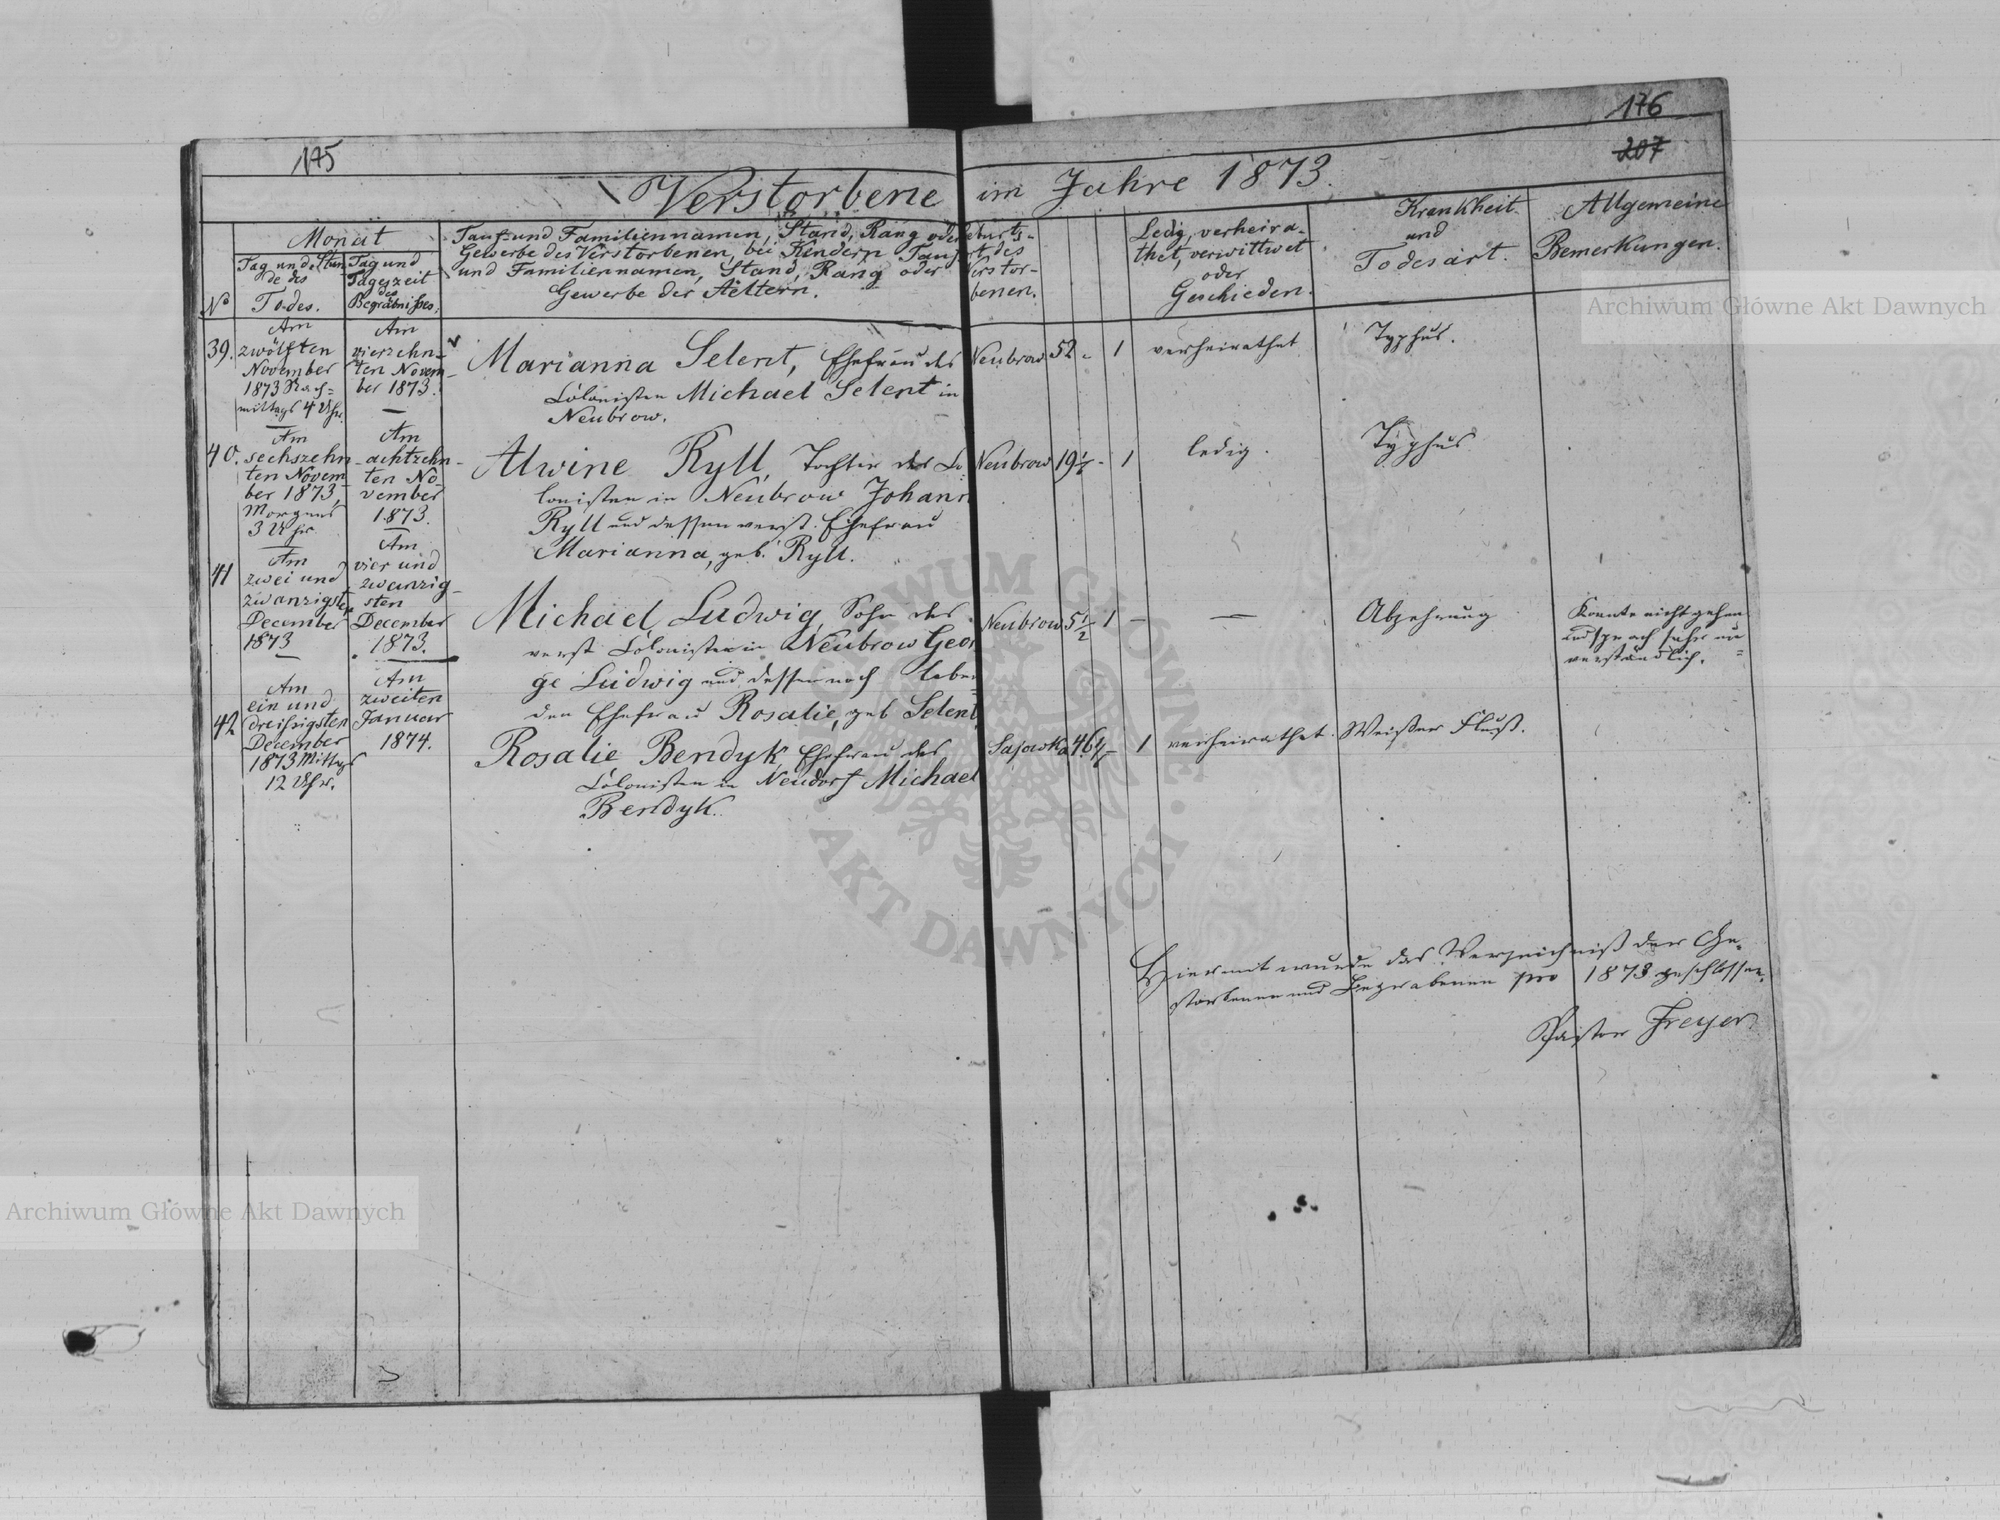 175
176
207
Verstorbene im Jahre 1873.
Monat
No
Tag und Stun
de des
Todes.
Tag und
Tageszeit
des
Begräbnißes.
Tauf und Familiennamen, Stand, Rang oder
Gewerbe des Verstorbenen, bei Kindern Tauf
und Familiennamen, Stand, Rang oder
Gewerbe der Aeltern.
Geburts-
ort des
Verstor-
benen.
Ledig, verheira-
thet, verwittwet
oder
Geschieden.
Krankheit
und
Todesart.
Allgemeine
Bemerkungen.
39.
Am
zwölften
November
1873 Nach-
mittags 4 Uhr.
Am
vierzehn-
ten Novem-
ber 1873.
Marianna Selent, Ehefrau des
Colonisten Michael Selent in
Neubrow.
Neubrow 52 - 1
verheirathet
Typhus.
40.
Am
sechszehn
ten Novem
ber 1873
Morgens
3 Uhr
Am
achtzehn-
ten No-
vember
1873.
Alwine Ryll, Tochter des Co
lonisten in Neubrow Johann
Ryll und dessen verst. Ehefrau
Marianna, geb. Ryll.
Neubrow 19 - 1
ledig.
Typhus
41
Am
zwei und
zwanzigsten
December
1873
Am
vier und
zwanzig-
sten
December
1873.
Michael Ludwig, Sohn des
verst. Colonisten in Neubrow Geor
ge Ludwig und dessen noch leben
den Ehefrau Rosalie, geb Selent
Neubrow 5 1/2 1 -
—
Abzehrung
Konnte nicht gehen
und sprach sehr un=
verständlich.
42
Am
ein und
dreißigsten
December
1873 Mittags
12 Uhr.
Am
zweiten
Januar
1874.
Rosalie Bendyk, Ehefrau des
Colonisten in Neudorf Michael
Bendyk.
Sajowka 46 - 1
verheirathet.
Weißer Fluß.
Hiermit wurde das Verzeichniß der Ge-
storbenen und Begrabenen pro 1873 geschlossen.
Pastor Freyer
Archiwum Główne Akt Dawnych
Archiwum Główne Akt Dawnych
ARCHIWUM GŁÓWNE · AKT DAWNYCH ·